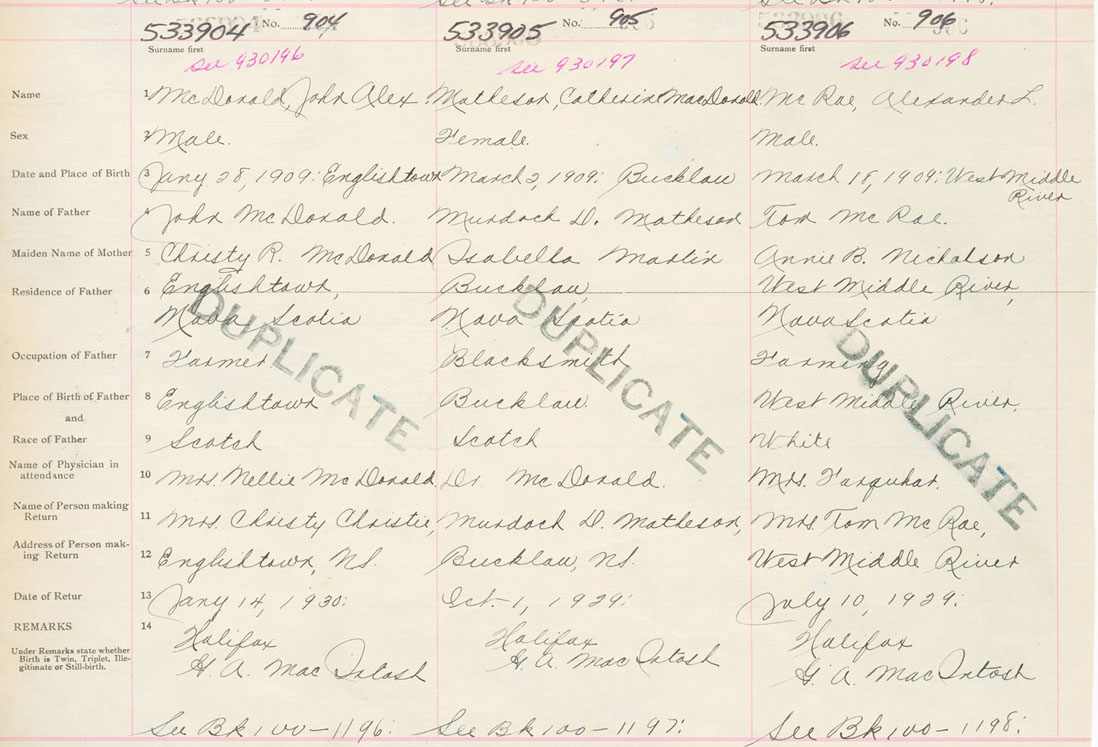 533904 No. 904 533905 No. 905 533906 No. 906
Surname first Surname first Surname first
See 930196 See 930197 See 930198
Name 1 McDonald, John Alex. Matheson, Catherine MacDonald Mc Rae, Alexander L.
Sex 2 Male. Female. Male.
Date and Place of Birth 3 Jany 28, 1909: Englishtown March 2, 1909: Bucklaw March 18, 1909: West Middle
River
Name of Father 4 John McDonald. Murdoch D. Matheson Tom Mc Rae.
Maiden Name of Mother 5 Christy R. McDonald Isabella Martin Annie B. Nicholson
Residence of Father 6 Englishtown, Bucklaw, West Middle River,
Nova Scotia Nova Scotia Nova Scotia
Occupation of Father 7 Farmer Blacksmith Farming
Place of Birth of Father 8 Englishtown Bucklaw. West Middle River.
and
Race of Father 9 Scotch Scotch White
Name of Physician in
attendance 10 Mrs. Nellie McDonald. Dr. McDonald. Mrs. Farquhar.
Name of Person making
Return 11 Mrs. Christy Christie, Murdoch D. Matheson, Mrs Tom Mc Rae,
Address of Person mak-
ing Return 12 Englishtown, N.S. Bucklaw, N.S. West Middle River
Date of Retur 13 Jany 14, 1930: Oct. 1, 1929: July 10, 1929:
REMARKS 14 Halifax Halifax Halifax
Under Remarks state whether
Birth is Twin, Triplet, Ille-
gitimate or Still-birth.
G. A. MacIntosh G. A. MacIntosh G. A. MacIntosh
See Bk 100-1196: See Bk 100-1197: See Bk 100-1198:
DUPLICATE DUPLICATE DUPLICATE